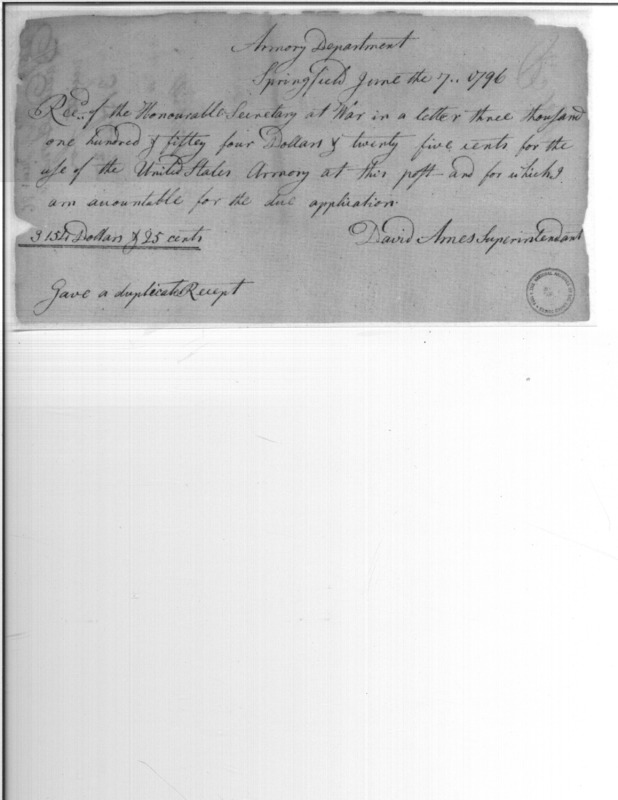 Armory Department
Springfield June the 7.. 1796
Rec'd.. of the Honourable Secretary at War in a letter three thousand
one hundred & fiftey four Dollars & twenty five cents for the
use of the United States Armory at this post and for which I
am acountable for the due application.
3154 Dollars & 25 cents
David Ames Superintendant
Gave a duplicate Recept